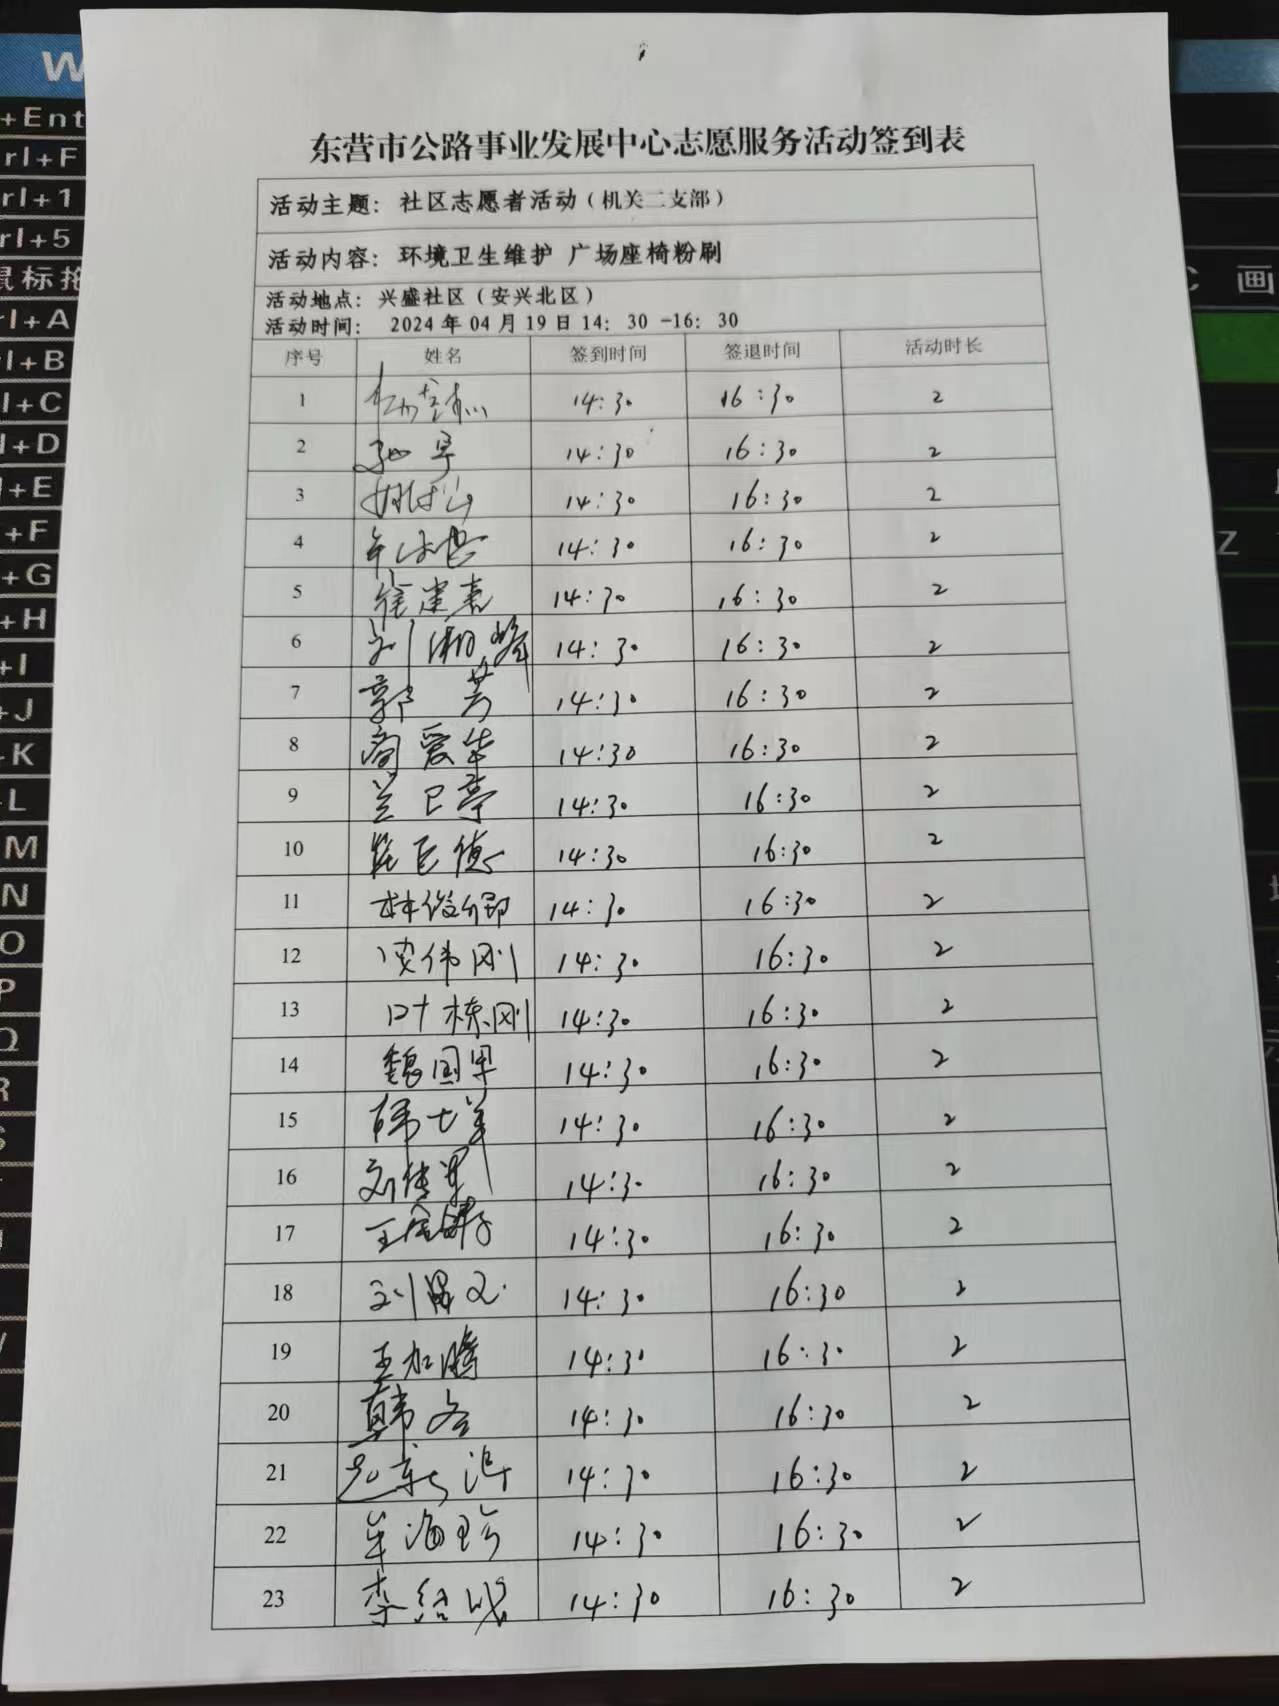 W
+Ent
rl+F
rl+1
rl+5
鼠标拖
rl+A
l+B
l+C
l+D
+E
+F
+G
+H
+I
+J
+K
L
M
N
O
P
Q
R
S
C 画
Z
东营市公路事业发展中心志愿服务活动签到表
活动主题：社区志愿者活动（机关二支部）
活动内容：环境卫生维护 广场座椅粉刷
活动地点：兴盛社区（安兴北区）
活动时间： 2024年04月19日14：30 -16：30
序号 姓名 签到时间 签退时间 活动时长
1 14:30 16:30 2
2 14:30 16:30 2
3 14:30 16:30 2
4 14:30 16:30 2
5 徐建 14:30 16:30 2
6 刘湘 14:30 16:30 2
7 郭芳 14:30 16:30 2
8 商爱华 14:30 16:30 2
9 兰卫亭 14:30 16:30 2
10 14:30 16:30 2
11 林 14:30 16:30 2
12 伟刚 14:30 16:30 2
13 叶栋刚 14:30 16:30 2
14 魏国军 14:30 16:30 2
15 14:30 16:30 2
16 刘传军 14:30 16:30 2
17 王 14:30 16:30 2
18 刘 14:30 16:30 2
19 王加腾 14:30 16:30 2
20 韩冬 14:30 16:30 2
21 14:30 16:30 2
22 牟海珍 14:30 16:30 2
23 李绍成 14:30 16:30 2